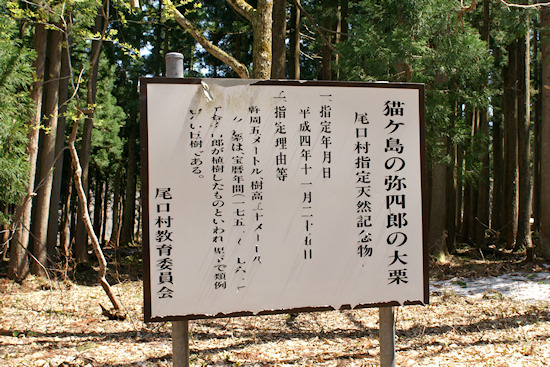 猫ケ島の弥四郎の大栗
尾口村指定天然記念物
一、指定年月日
平成四年十一月二十五日
二、指定理由等
幹周五メートル・樹高三十メートル
栗は宝暦年間(一七五
郎が植樹したものといわれ県下で類例
い巨樹である。
尾口村教育委員会